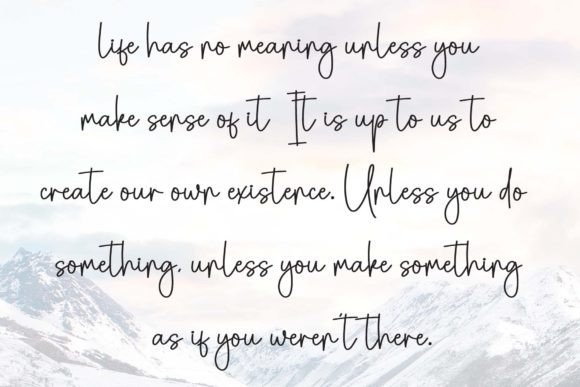 life has no meaning unless you
make sense of it It is up to us to
create our own existence. Unless you do
something. unless you make something
as if you weren't there.